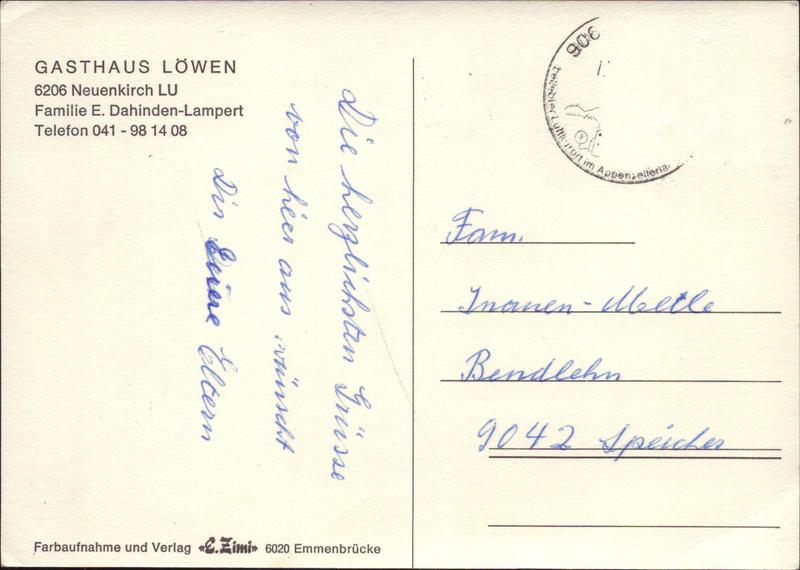 GASTHAUS LÖWEN
6206 Neuenkirch LU
Familie E. Dahinden-Lampert
Telefon 041 - 98 14 08
Die herzlichsten Grüsse
von hier aus wünscht
Dir Euere Eltern
906
Luftkurort im Appenzellerla.
Fam.
Inauen-Mettle
Bendlehn
9042 Speicher
Farbaufnahme und Verlag «E. Zimi» 6020 Emmenbrücke